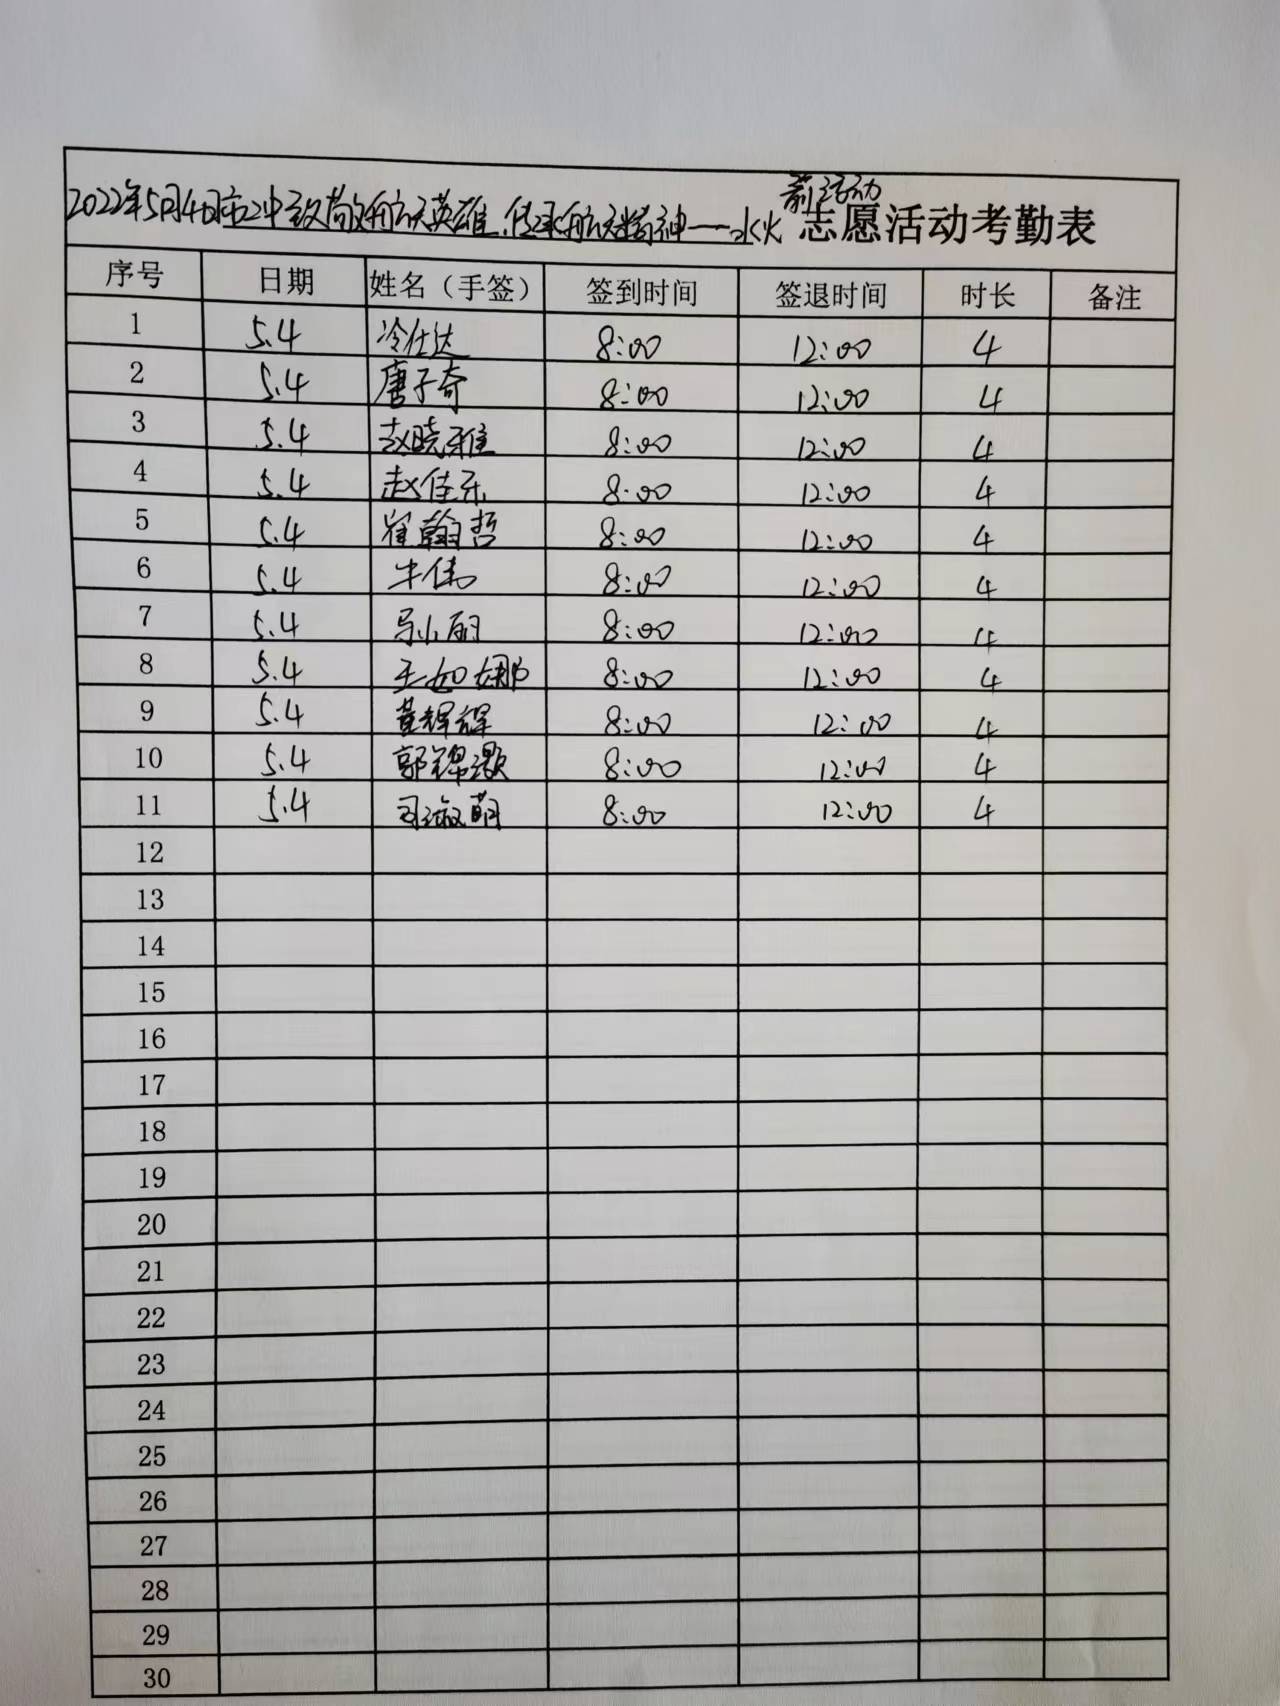 2022年5月4日市2中致敬航天英雄.传承航天精神——水火箭活动志愿活动考勤表
序号 日期 姓名（手签） 签到时间 签退时间 时长 备注
1 5.4 冷仕达 8:00 12:00 4
2 5.4 唐子奇 8:00 12:00 4
3 5.4 赵晓雅 8:00 12:00 4
4 5.4 赵佳乐 8:00 12:00 4
5 5.4 崔翰哲 8:00 12:00 4
6 5.4 牛伟 8:00 12:00 4
7 5.4 马小丽 8:00 12:00 4
8 5.4 王如娜 8:00 12:00 4
9 5.4 黄辉辉 8:00 12:00 4
10 5.4 8:00 12:00 4
11 5.4 司淑萌 8:00 12:00 4
12
13
14
15
16
17
18
19
20
21
22
23
24
25
26
27
28
29
30